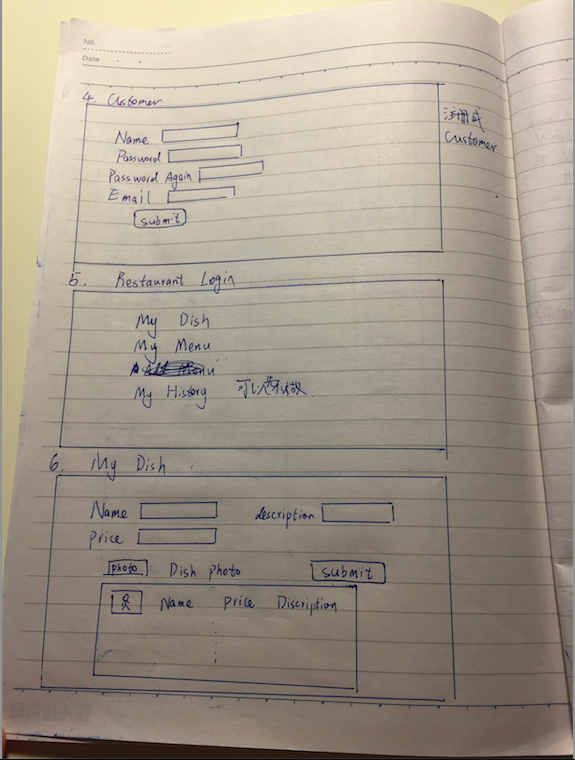 No.
Date
4. Customer
Name
Password
Password Again
Email
submit
注册成
Customer
5. Restaurant Login
My Dish
My Menu
My History 可以考虑做
6. My Dish
Name description
price
photo Dish photo submit
Name Price Discription